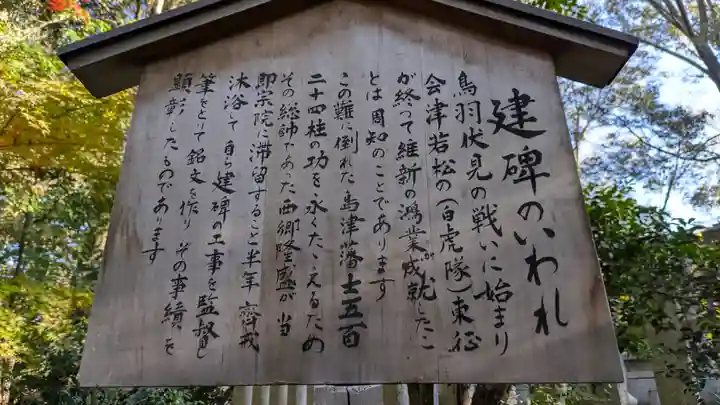 建碑のいわれ
鳥羽伏見の戦いに始まり
会津若松の(白虎隊)東征
が終って維新の鴻業が成就したこ
とは周知のことであります
この難に倒れた島津藩士五百
二十四柱の功を永くたゝえるため
その総帥であった西郷隆盛が当
即宗院に滞留すること半年 齊戒
沐浴して自ら建碑の工事を監督し
筆をとって銘文を作り その事績を
顕彰したものであります